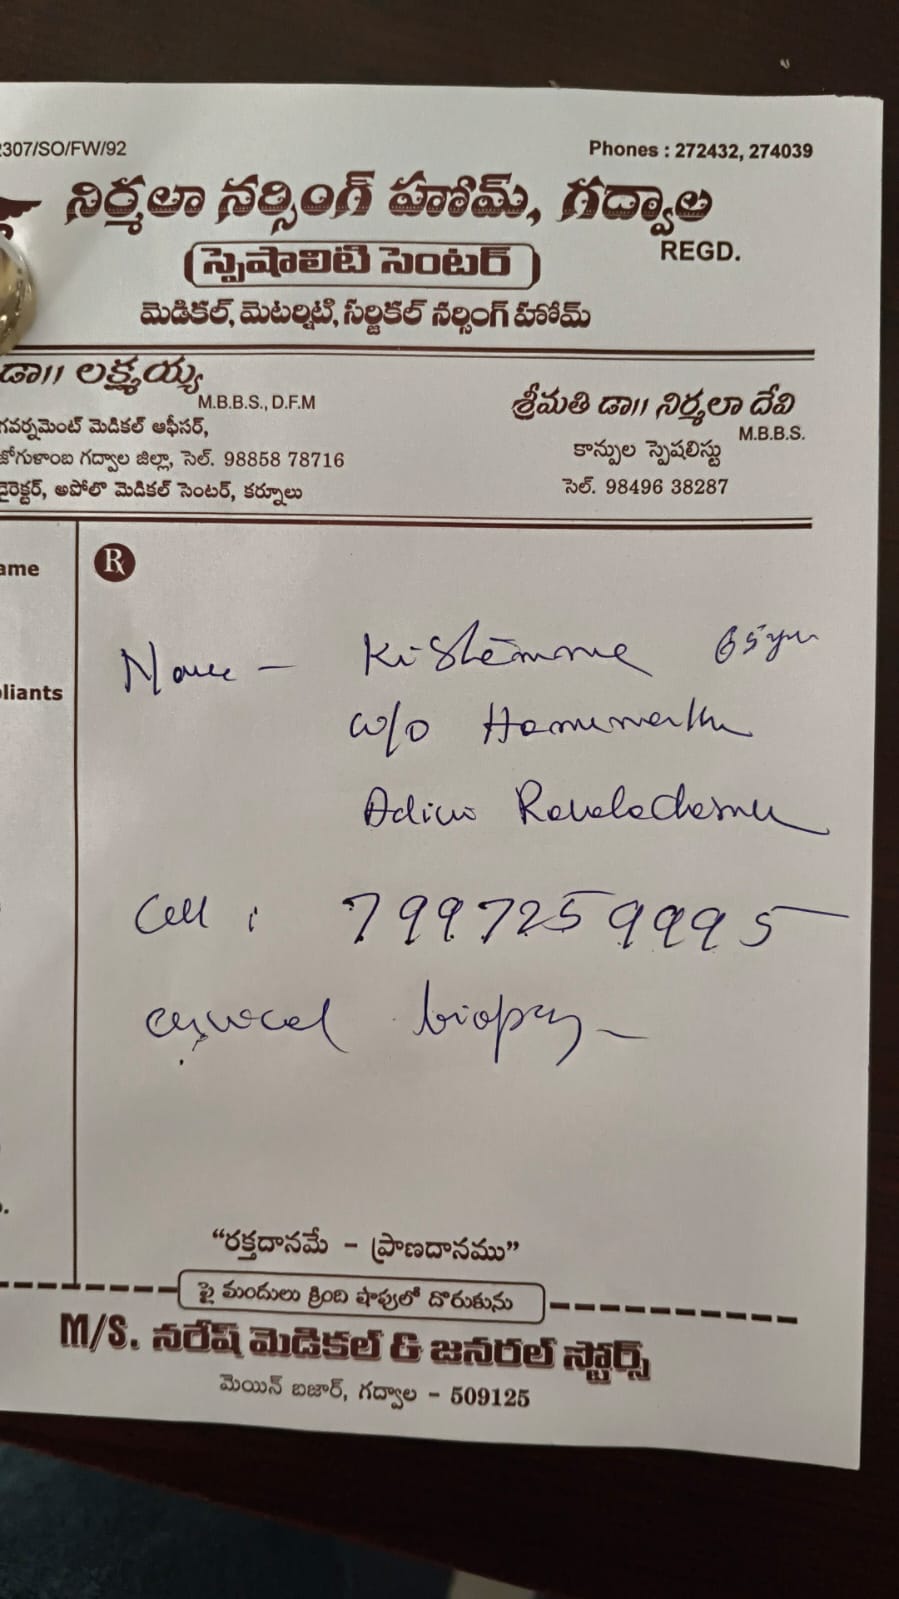 2307/SO/FW/92
Phones : 272432, 274039
నిర్మలా నర్సింగ్ హోమ్, గద్వాల
REGD.
(స్పెషాలిటి సెంటర్)
మెడికల్, మెటర్నిటి, సర్జికల్ నర్సింగ్ హోమ్
డా౹౹ లక్ష్మయ్య
M.B.B.S., D.F.M
గవర్నమెంట్ మెడికల్ ఆఫీసర్,
జోగుళాంబ గద్వాల జిల్లా, సెల్. 98858 78716
డైరెక్టర్, అపోలో మెడికల్ సెంటర్, కర్నూలు
శ్రీమతి డా౹౹ నిర్మలా దేవి
M.B.B.S.
కాన్పుల స్పెషలిస్టు
సెల్. 98496 38287
ame
pliants
Rx
Name - Kistemme 65yrs
w/o
Cell : 7997259995
cervical biopsy
"రక్తదానమే - ప్రాణదానము"
పై మందులు క్రింది షాపులో దొరుకును
M/S. నరేష్ మెడికల్ & జనరల్ స్టోర్స్
మెయిన్ బజార్, గద్వాల - 509125